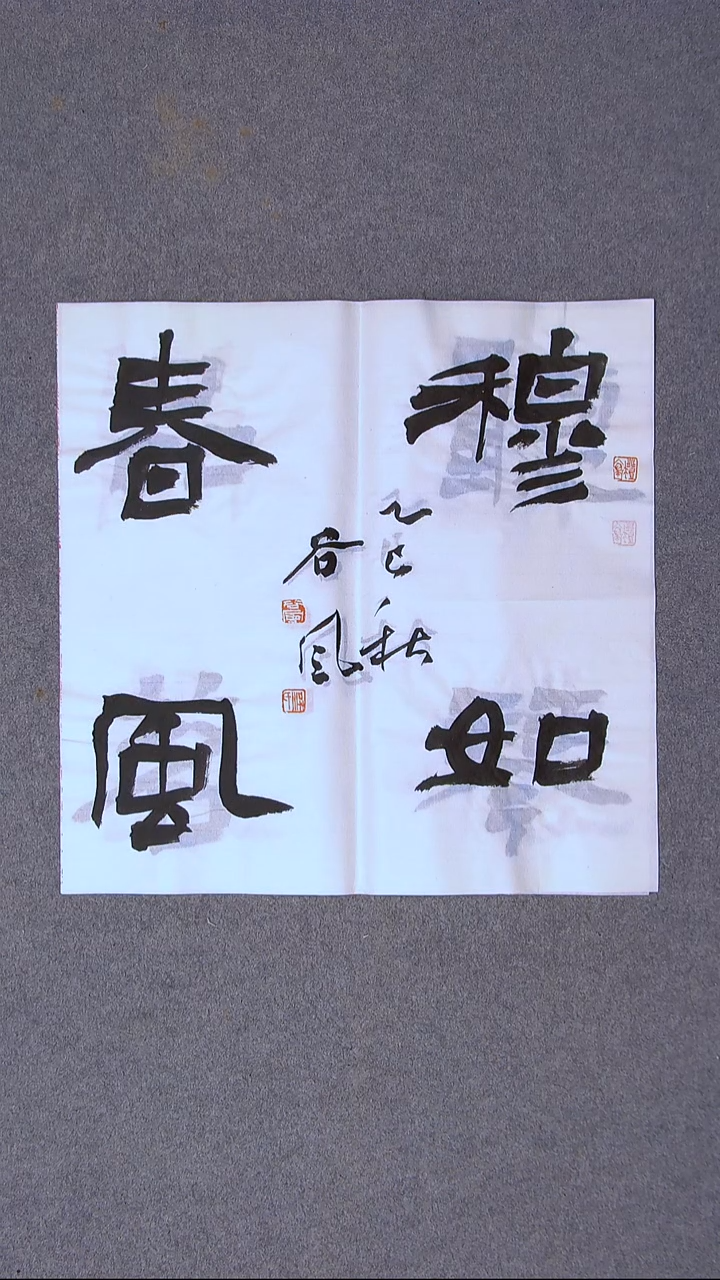 穆如
春風
乙巳秋
谷风